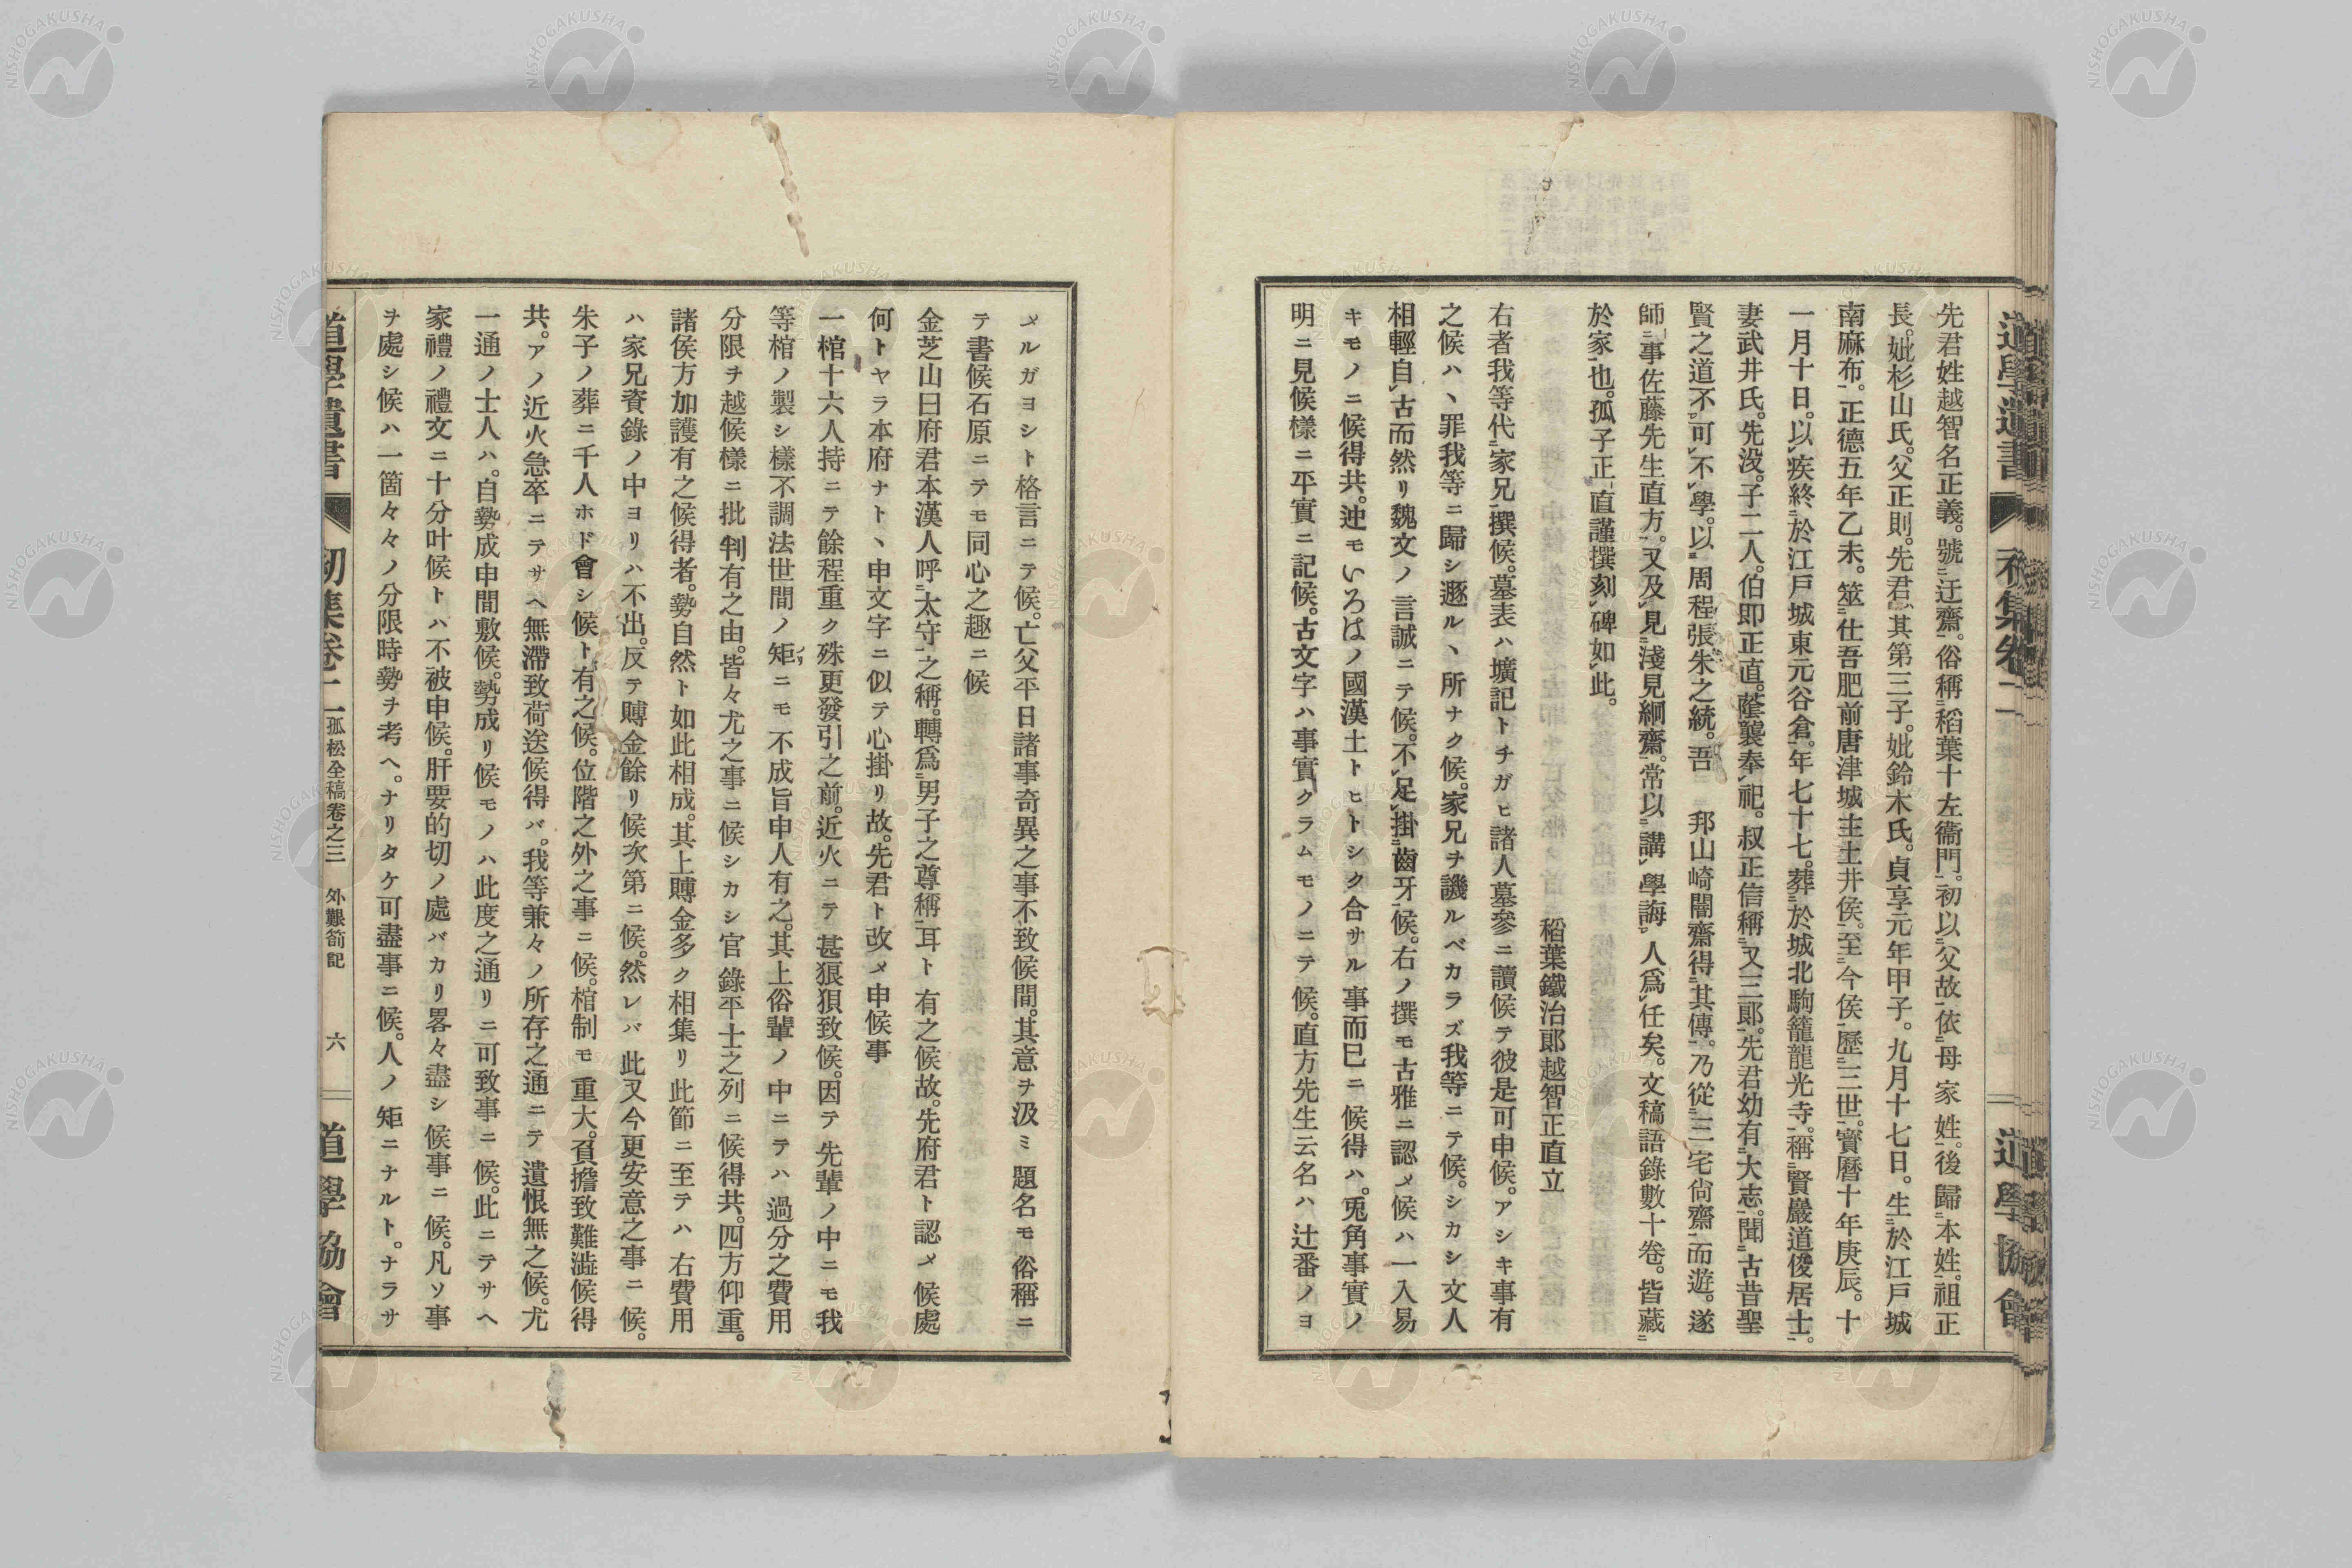 先君姓越智名正義。號迂齋。俗稱稻葉十左衞門。初以父故依母家姓。後歸本姓。祖正
長。妣杉山氏。父正則。先君其第三子。妣鈴木氏。貞享元年甲子。九月十七日。生於江戸城
南麻布。正德五年乙未。筮仕吾肥前唐津城主土井侯。至今侯歷三世。寶曆十年庚辰。十
一月十日。以疾終於江戸城東元谷倉。年七十七。葬於城北駒籠龍光寺。稱賢巖道俊居士。
妻武井氏。先沒。子二人。伯即正直。蔭襲奉祀。叔正信稱又三郎。先君幼有大志。聞古昔聖
賢之道不可不學。以周程張朱之統。吾 邦山崎闇齋得其傳。乃從三宅尙齋而遊。遂
師事佐藤先生直方。又及見淺見絅齋。常以講學誨人爲任矣。文稿語錄數十卷。皆藏
於家也。孤子正直謹撰刻碑如此。
稻葉鐵治郎越智正直立
右者我等代家兄撰候。墓表ハ壙記トチガヒ諸人墓參ニ讀候テ彼是可申候。アシキ事有
之候ハヽ罪我等ニ歸シ遯ルヽ所ナク候。家兄ヲ譏ルベカラズ我等ニテ候。シカシ文人
相輕自古而然リ魏文ノ言誠ニテ候。不足掛齒牙候。右ノ撰モ古雅ニ認メ候ハ一入易
キモノニ候得共。迚モいろはノ國漢土トヒトシク合サル事而已ニ候得ハ。兎角事實ノ
明ニ見候樣ニ平實ニ記候。古文字ハ事實クラムモノニテ候。直方先生云名ハ辻番ノヨ
メルガヨシト格言ニテ候。亡父平日諸事奇異之事不致候間。其意ヲ汲ミ題名モ俗稱ニ
テ書候石原ニテモ同心之趣ニ候
金芝山曰府君本漢人呼太守之稱。轉爲男子之尊稱耳ト有之候故。先府君ト認メ候處
何トヤラ本府ナトヽ申文字ニ似テ心掛リ故。先君ト改メ申候事
一棺十六人持ニテ餘程重ク殊更發引之前。近火ニテ甚狼狽致候。因テ先輩ノ中ニモ我
等棺ノ製シ樣不調法世間ノ矩ニモ不成旨申人有之。其上俗輩ノ中ニテハ過分之費用
分限ヲ越候樣ニ批判有之由。皆々尤之事ニ候シカシ官錄平士之列ニ候得共。四方仰重。
諸侯方加護有之候得者。勢自然ト如此相成。其上賻金多ク相集リ此節ニ至テハ右費用
ハ家兄資錄ノ中ヨリハ不出。反テ賻金餘リ候次第ニ候。然レバ此又今更安意之事ニ候。
朱子ノ葬ニ千人ホド會シ候ト有之候。位階之外之事ニ候。棺制モ重大。負擔致難澁候得
共。アノ近火急卒ニテサヘ無滯致荷送候得バ。我等兼々ノ所存之通ニテ遺恨無之候。尤
一通ノ士人ハ。自勢成申間敷候。勢成リ候モノハ此度之通リニ可致事ニ候。此ニテサヘ
家禮ノ禮文ニ十分叶候トハ不被申候。肝要的切ノ處バカリ畧々盡シ候事ニ候。凡ソ事
ヲ處シ候ハ一箇々々ノ分限時勢ヲ考ヘ。ナリタケ可盡事ニ候。人ノ矩ニナルト。ナラサ
道學遺書 初集卷二 孤松全稿卷之三 外艱箚記 六 道學協會